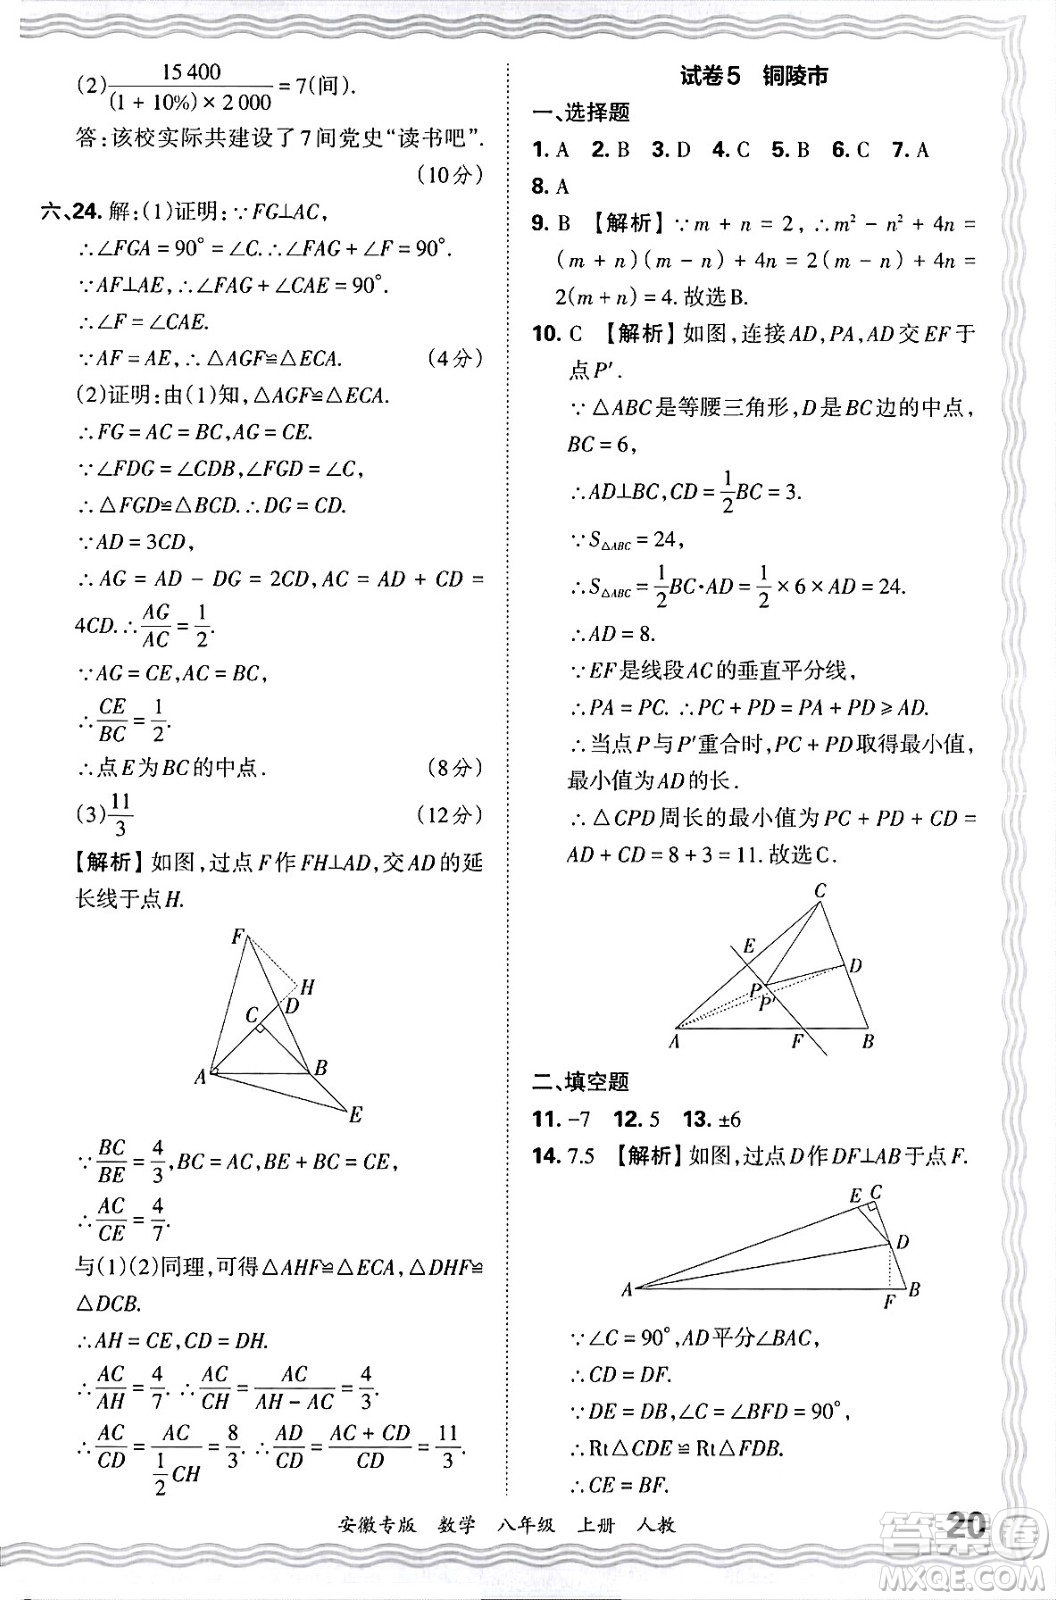 (2) 15 400/((1 + 10%) × 2 000) = 7(间).
答:该校实际共建设了7间党史“读书吧”.
(10分)
六、24. 解:(1)证明:∵FG⊥AC,
∴∠FGA = 90° = ∠C.∴∠FAG + ∠F = 90°.
∵AF⊥AE,∴∠FAG + ∠CAE = 90°.
∴∠F = ∠CAE.
∵AF = AE,∴△AGF≌△ECA. (4分)
(2)证明:由(1)知,△AGF≌△ECA.
∴FG = AC = BC,AG = CE.
∵∠FDG = ∠CDB,∠FGD = ∠C,
∴△FGD≌△BCD.∴DG = CD.
∵AD = 3CD,
∴AG = AD − DG = 2CD,AC = AD + CD =
4CD.∴AG/AC = 1/2.
∵AG = CE,AC = BC,
∴CE/BC = 1/2.
∴点E为BC的中点. (8分)
(3)11/3 (12分)
【解析】如图,过点F作FH⊥AD,交AD的延
长线于点H.
F
H
D
C
A
B
E
∵BC/BE = 4/3,BC = AC,BE + BC = CE,
∴AC/CE = 4/7.
与(1)(2)同理,可得△AHF≌△ECA,△DHF≌
△DCB.
∴AH = CE,CD = DH.
∴AC/AH = 4/7. ∴AC/CH = AC/(AH − AC) = 4/3.
∴AC/CD = AC/(1/2 CH) = 8/3. ∴AD/CD = (AC + CD)/CD = 11/3.
试卷5 铜陵市
一、选择题
1. A 2. B 3. D 4. C 5. B 6. C 7. A
8. A
9. B 【解析】∵m + n = 2,∴m² − n² + 4n =
(m + n)(m − n) + 4n = 2(m − n) + 4n =
2(m + n) = 4.故选B.
10. C 【解析】如图,连接AD,PA,AD交EF于
点P′.
∵△ABC是等腰三角形,D是BC边的中点,
BC = 6,
∴AD⊥BC,CD = 1/2 BC = 3.
∵S△ABC = 24,
∴S△ABC = 1/2 BC·AD = 1/2 × 6 × AD = 24.
∴AD = 8.
∵EF是线段AC的垂直平分线,
∴PA = PC. ∴PC + PD = PA + PD ⩾ AD.
∴当点P与P′重合时,PC + PD取得最小值,
最小值为AD的长.
∴△CPD周长的最小值为PC + PD + CD =
AD + CD = 8 + 3 = 11.故选C.
C
E
D
P
P′
A
F
B
二、填空题
11. −7 12. 5 13. ±6
14. 7.5 【解析】如图,过点D作DF⊥AB于点F.
E
C
D
A
F
B
∵∠C = 90°,AD平分∠BAC,
∴CD = DF.
∵DE = DB,∠C = ∠BFD = 90°,
∴Rt△CDE ≌ Rt△FDB.
∴CE = BF.
安徽专版 数学 八年级 上册 人教
20
答案圈
MXQE.COM